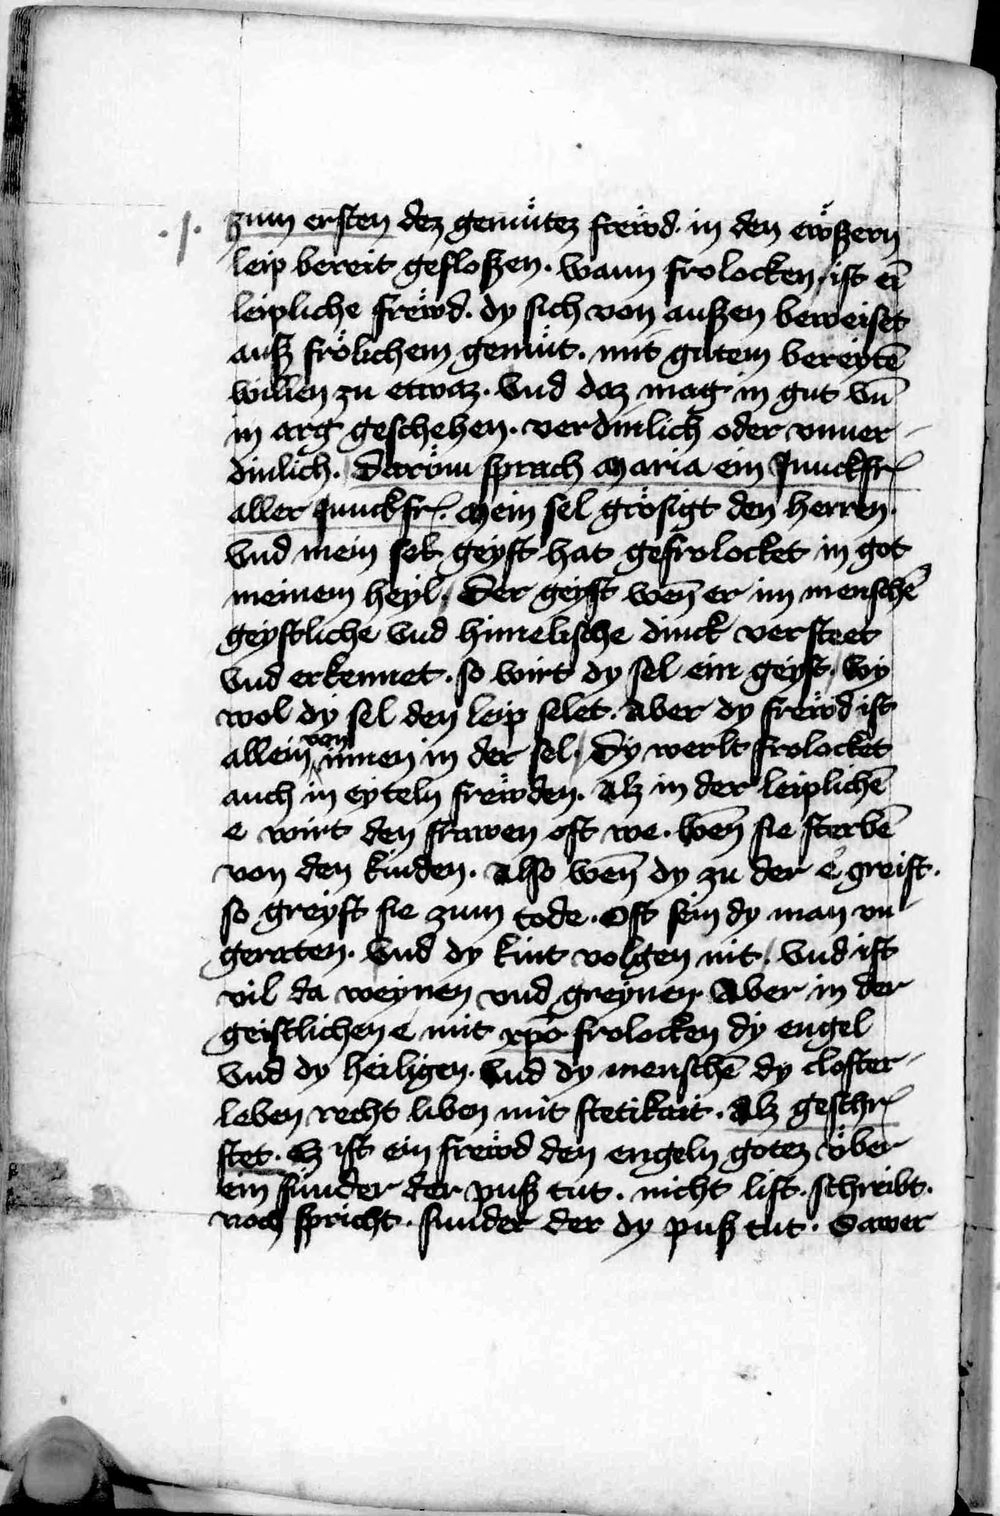 .1. zum ersten dez gemütez frewd. in den ewßern
leip bereit gefloßen. wann frolocken / ist ei̅
leipliche frewd. dy sich von außen beweiset
auß frölichem gemüt. mit gutem bereyte̅
willen zu etwaz. Vnd daz mag in gut vn̅
in arg geschehen. verdinlich oder vnuer-
dinlich. Doröm sprach Maria ein Junckfr
aller Junckfr. Mein sel grösigt den herren.
Vnd mein geyst hat gefrolocket in got
meinem heyl / Der geyst wen̅ er im mensche̅
geystliche vnd himelische dinck versteet
vnd erkennet. so wirt dy sel ein geyst / Wy
wol dy sel den leip selet. Aber dy frewd ist
allein von innen in der sel / Dy werlt frolocket
auch in eyteln frewden. Alz in der leipliche̅
e wirt den frawen oft we. wen̅ sie sterbe̅
von den kinden. Also wen̅ dy zu der e greift.
so greyft sie zum tode. Oft sein dy man vn-
geraten. Vnd dy kint volgen nit / Vnd ist
vil da weynen vnd greynen Aber in der
geistlichen e mit xp̅o frolocken dy engel
Vnd dy heiligen. Vnd dy mensche̅ dy closter-
leben recht liben mit stetikait. Alz geschr
stet. Ez ist ein frewd den engeln gotez vber
ein sünder der puß tut. nicht list. schreibt.
noch spricht. sunder der dy puß tut. Sawer